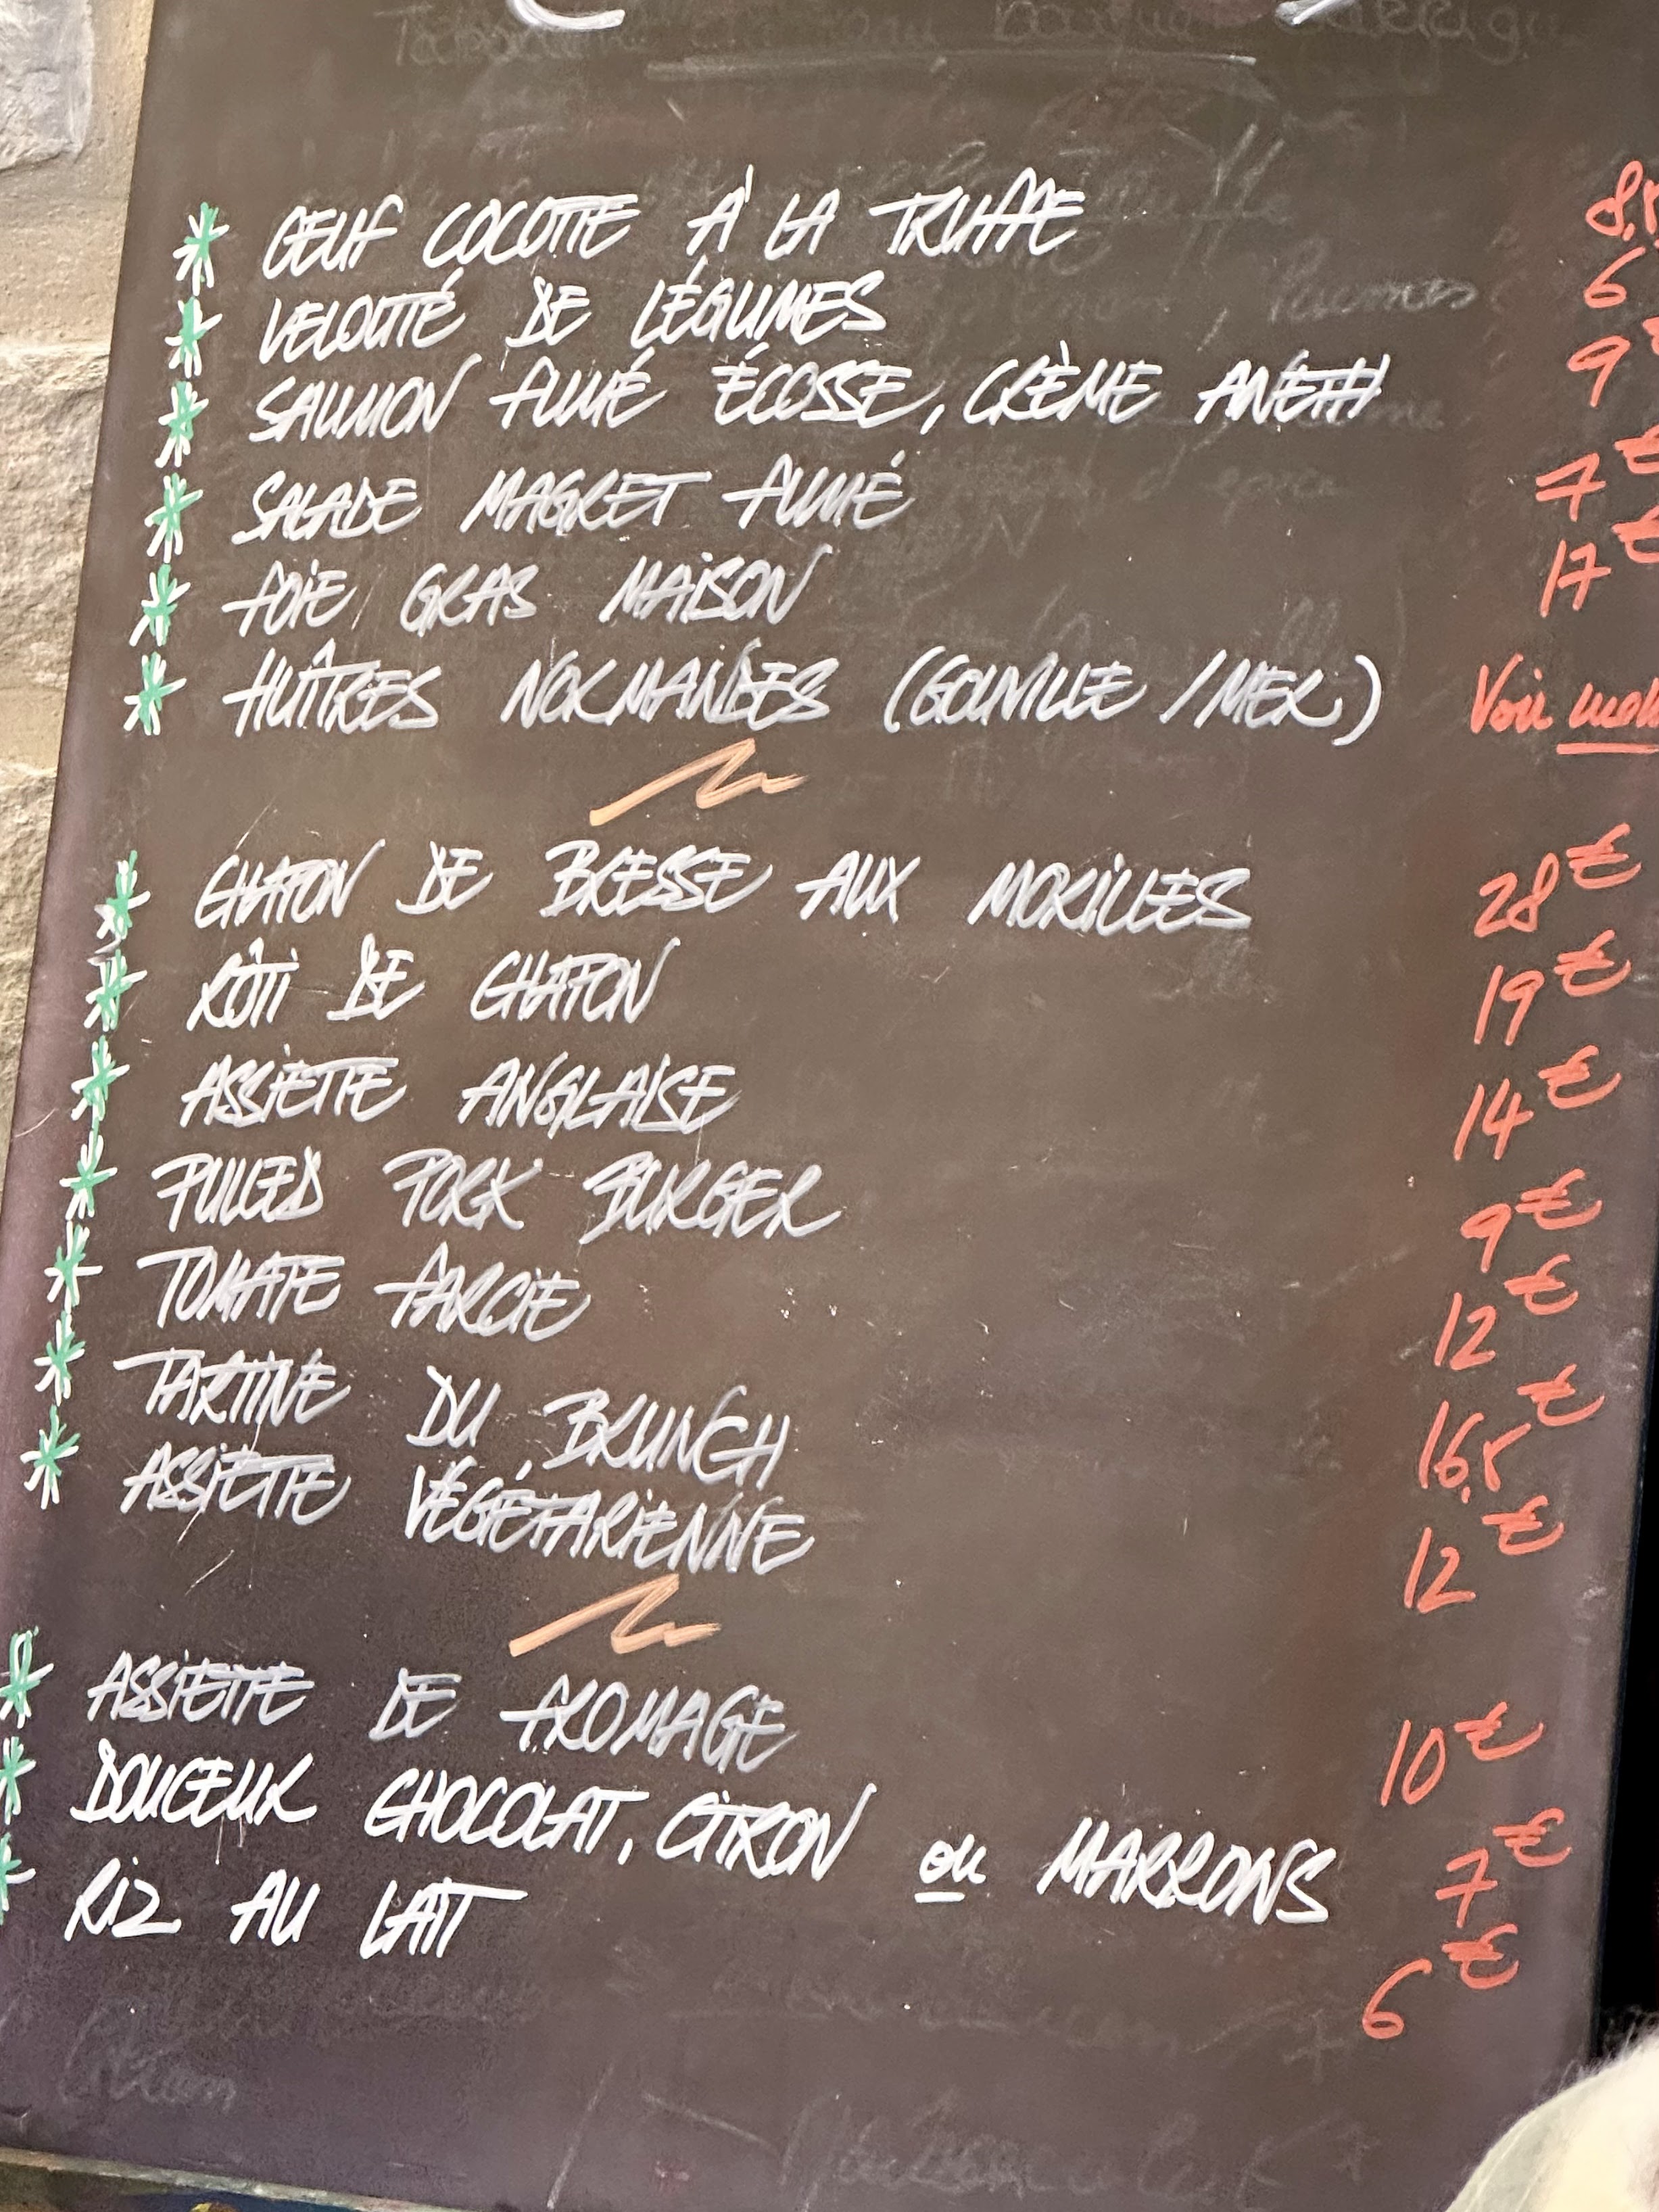 ŒUF COCOTTE À LA TRUFFE 8,5
VELOUTÉ DE LÉGUMES 6
SAUMON FUMÉ ÉCOSSE, CRÈME ANETH 9€
SALADE MAGRET FUMÉ 7€
FOIE GRAS MAISON 17€
HUÎTRES NORMANDES (GOUVILLE / MER) Voir
CHAPON DE BRESSE AUX MORILLES 28€
RÔTI DE CHAPON 19€
ASSIETTE ANGLAISE 14€
PULLED PORK BURGER 9€
TOMATE FARCIE 12€
TARTINE DU BRUNCH 16,5€
ASSIETTE VÉGÉTARIENNE 12€
ASSIETTE DE FROMAGE 10€
DOUCEUR CHOCOLAT, CITRON ou MARRONS 7€
RIZ AU LAIT 6€